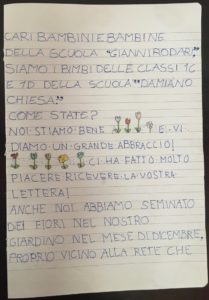 CARI BAMBINI E BAMBINE
DELLA SCUOLA "GIANNI RODARI",
SIAMO I BIMBI DELLE CLASSI 1C
E 1D DELLA SCUOLA "DAMIANO
CHIESA".
COME STATE?
NOI STIAMO BENE E VI
DIAMO UN GRANDE ABBRACCIO!
CI HA FATTO MOLTO
PIACERE RICEVERE LA VOSTRA
LETTERA!
ANCHE NOI ABBIAMO SEMINATO
DEI FIORI NEL NOSTRO
GIARDINO NEL MESE DI DICEMBRE,
PROPRIO VICINO ALLA RETE CHE